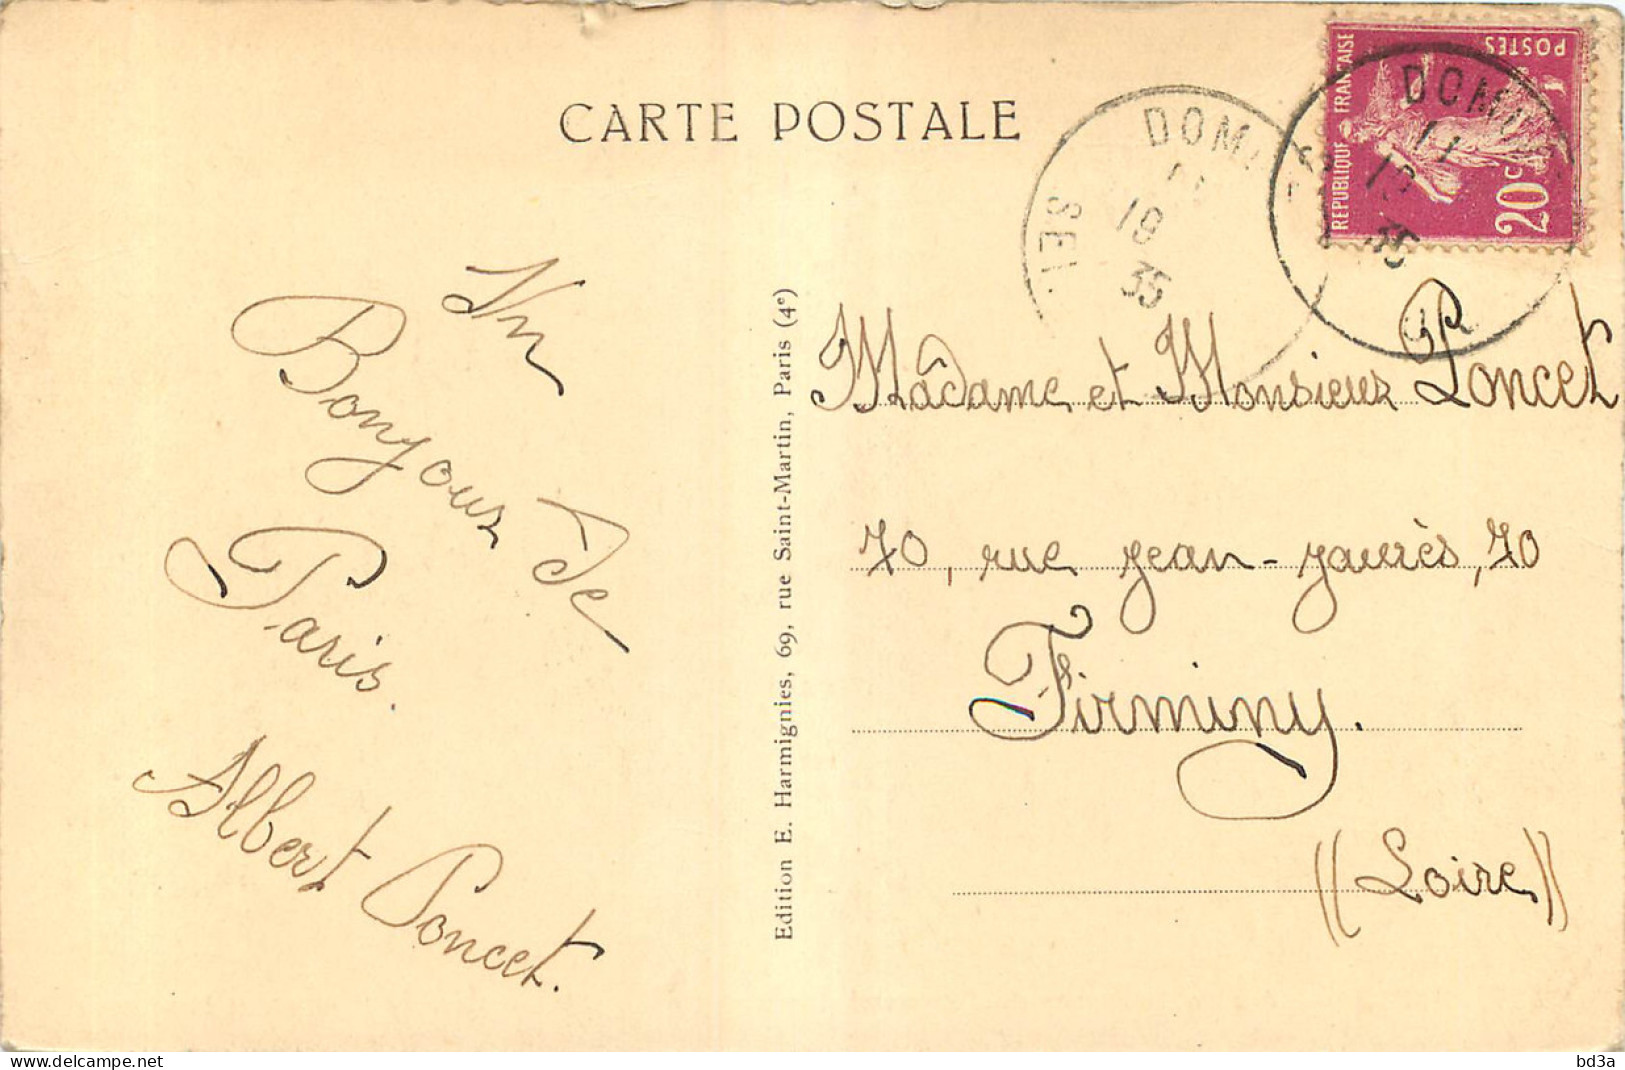 CARTE POSTALE
REPUBLIQUE FRANÇAISE
POSTES
20c
19
35
35
Un
Bonjour de
Paris.
Albert Poncet.
Edition E. Harmignies, 69, rue Saint-Martin, Paris (4e)
Mâdame et Monsieur Poncet
70, rue Jean-Jaurès, 70
Firminy.
(( Loire ))
www.delcampe.net
bd3a